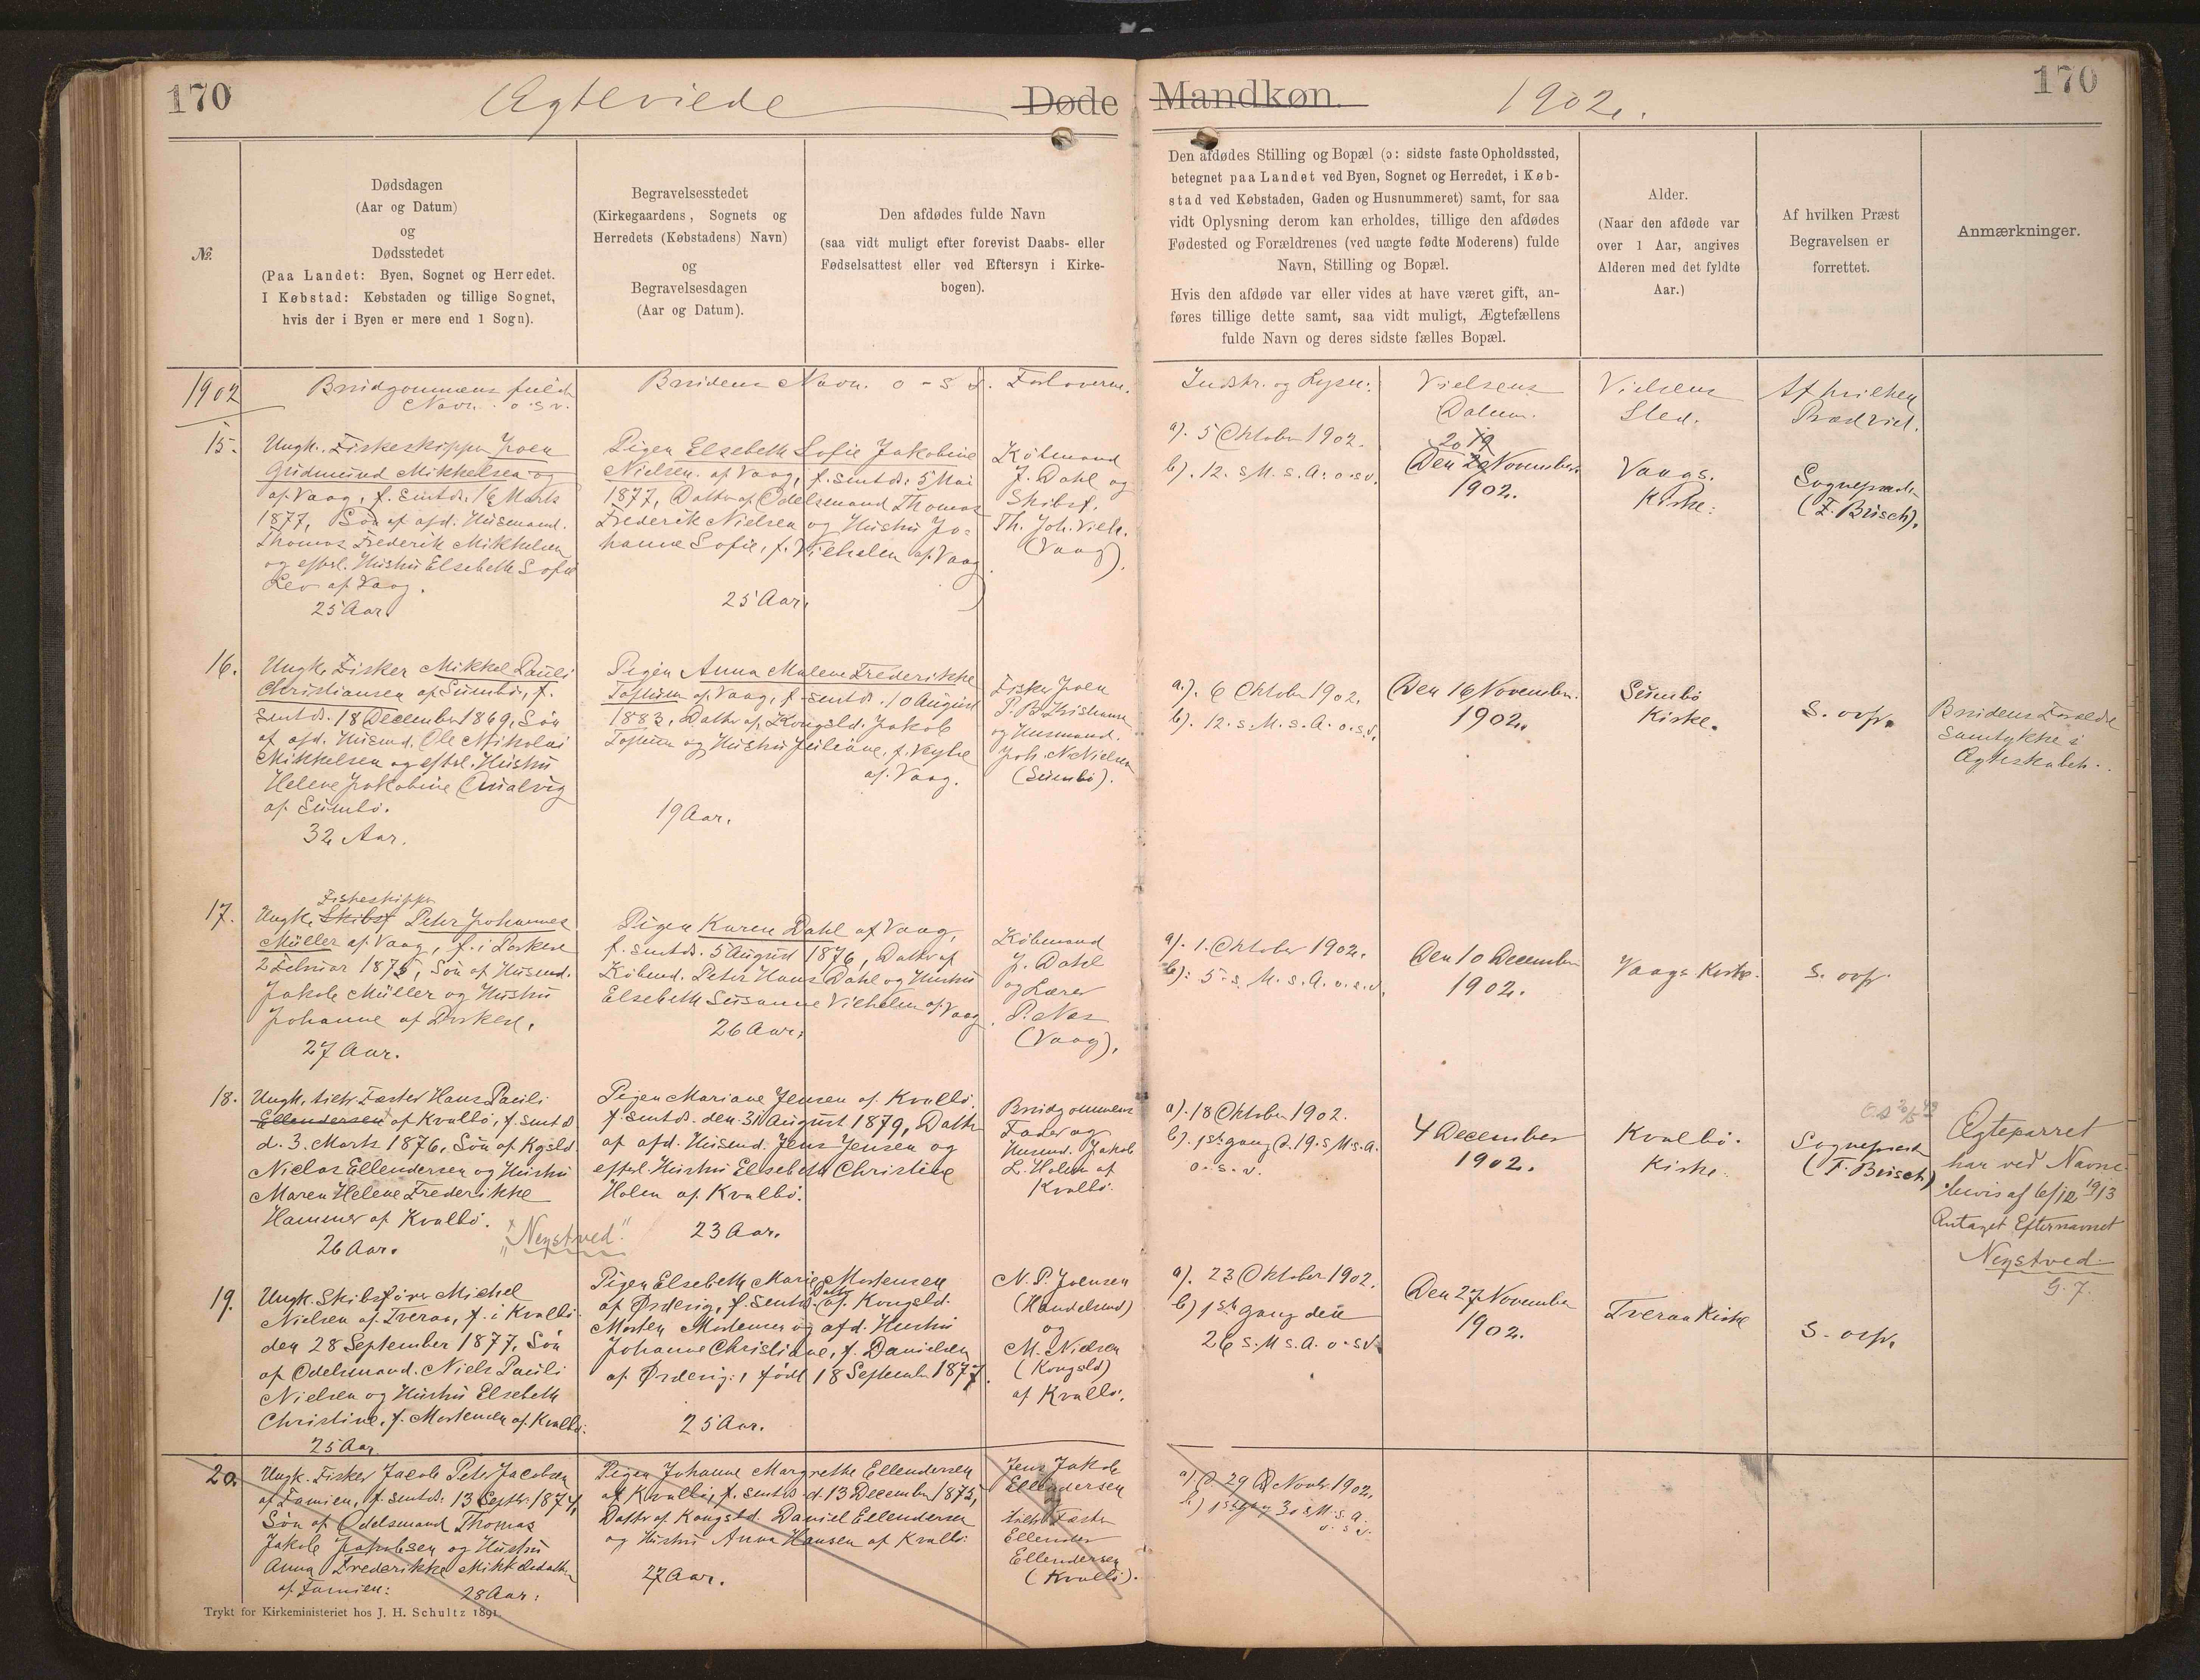 170
Ægteviede
Døde
Mandkøn.
1902.
170
№.
Dødsdagen
(Aar og Datum)
og
Dødsstedet
(Paa Landet: Byen, Sognet og Herredet.
I Købstad: Købstaden og tillige Sognet,
hvis der i Byen er mere end 1 Sogn).
Begravelsesstedet
(Kirkegaardens, Sognets og
Herredets (Købstadens) Navn)
og
Begravelsesdagen
(Aar og Datum).
Den afdødes fulde Navn
(saa vidt muligt efter forevist Daabs- eller
Fødselsattest eller ved Eftersyn i Kirke-
bogen).
Den afdødes Stilling og Bopæl (ɔ: sidste faste Opholdssted,
betegnet paa Landet ved Byen, Sognet og Herredet, i Køb-
stad ved Købstaden, Gaden og Husnummeret) samt, for saa
vidt Oplysning derom kan erholdes, tillige den afdødes
Fødested og Forældrenes (ved uægte fødte Moderens) fulde
Navn, Stilling og Bopæl.
Hvis den afdøde var eller vides at have været gift, an-
føres tillige dette samt, saa vidt muligt, Ægtefællens
fulde Navn og deres sidste fælles Bopæl.
Alder.
(Naar den afdøde var
over 1 Aar, angives
Alderen med det fyldte
Aar.)
Af hvilken Præst
Begravelsen er
forrettet.
Anmærkninger.
1902
Brudgommens fulde
Navn. o.s.v.
Brudens Navn. o.s.v.
Forloverne.
Indskr. og Lysn:
Vielsens
Datum.
Vielsens
Sted.
Af hvilken
Præst viet.
15.
Ungk. Fiskeskipper Joen
Gudmund Mikkelsen
af Vaag, f. smtds. 16 Marts
1877, Søn af afd. Husmand.
Thomas Frederik Mikkelsen
og efterl. Hustru Elsebeth Sofie
Lev af Vaag.
25 Aar.
Pigen Elsebeth Sofie Jakobine
Nielsen. af Vaag, f. smtds. 5 Mai
1877, Datter af Odelsmand Thomas
Frederik Nielsen og Hustru Jo-
hanne Sofie, f. Vilhelm af Vaag.
25 Aar.
Købmand
J. Dahl og
Skibsf.
Th. Joh. Vilh.
(Vaag).
a). 5 Oktober 1902.
b). 12. s. M. s. A. o.s.v.
20 19
Den 20 November
1902.
Vaags.
Kirke.
Sognepræst
(F. Brüsch).
16.
Ungk. Fisker Mikkel Pauli
Christiansen af Sumbø, f.
smtds. 18 December 1869, Søn
af afd. Husmd. Ole Nikolai
Mikkelsen og efterl. Hustru
Helene Jakobine
af Sumbø.
32 Aar.
Pigen Anna Malene Frederikke
af Vaag, f. smtds. 10 August
1883, Datter af Kongsld. Jakob
og Hustru Juliane, f. Vesthe
af Vaag.
19 Aar.
Fisker Joen
P. B. Kristiansen
og Husmand.
Joh. N. Nielsen
(Sumbø).
a.). 6 Oktober 1902.
b). 12. s. M. s. A. o.s.v.
Den 16 November.
1902.
Sumbø
Kirke.
S. ovfr.
Brudens Forældre
samtykke i
Ægteskabet.
17.
Fiskeskipper
Ungk. Skibsf. Peter Johannes
Müller af Vaag, f. i Porkere
2 Februar 1875, Søn af Husmd.
Jakob Müller og Hustru
Johanne af Porkere.
27 Aar.
Pigen Karen Dahl af Vaag,
f. smtds. 5 August 1876, Datter af
Købmd. Peter Hans Dahl og Hustru
Elsebeth Susanne Vilhelm af Vaag.
26 Aar.
Købmand
J. Dahl
og Lærer
P. Nes
(Vaag).
a). 1. Oktober 1902.
b): 5. s. M. s. A. o.s.v.
Den 10 December
1902.
Vaags Kirke.
S. ovfr.
18.
Ungk. Fæster Hans Pauli
Ellendersen af Kvalbø, f. smtds
d. 3. Marts 1876, Søn af Kgsld.
Niclas Ellendersen og Hustru
Maren Helene Frederikke
Hammer af Kvalbø.
26 Aar.
"Neystved."
Pigen Mariane Jensen af Kvalbø.
f. smtds. den 31 August 1879, Datter
af afd. Husmd. Jens Jensen og
efterl. Hustru Elsebeth Christine
Holm af Kvalbø.
23 Aar.
Brudgommens
Fader og
Husmd. Jakob
L. Holm af
Kvalbø.
a). 18 Oktober 1902.
b). 1ste gang d. 19. s. M. s. A.
o.s.v.
4 December
1902.
Kvalbø.
Kirke.
Sognepræst
(F. Brüsch)
Ægteparret
har ved Navne-
bevis af 6/12 1913
Antaget Efternavnet
Neystved
G. J.
19.
Ungk. Skibsfører Michel
Nielsen af Tveraa, f. i Kvalbø
den 28 September 1877, Søn
af Odelsmand. Niels Pauli
Nielsen og Hustru Elsebeth
Christine, f. Mortensen af Kvalbø.
25 Aar.
Pigen Elsebeth Marie Mortensen
af Ørderig, f. smtds. Datter af Kongsld.
Morten Mortensen og afd. Hustru
Johanne Christiane, f. Danielsen
af Ørderig: , født 18 September 1877.
25 Aar.
N. P. Joensen
(Handelsmd)
og
M. Nielsen
(Kongsld)
af Kvalbø.
a). 23 Oktober 1902.
b) 1ste gang den
26 s. M. s. A. o.s.v.
Den 27 November
1902.
Tveraa Kirke
S. ovfr.
20.
Ungk. Fisker Jacob Peter Jacobsen
af Famien, f. smtds. 13 Septbr. 1874,
Søn af Odelsmand Thomas
Jakob Jakobsen og Hustru
Anna Frederikke
af Famien:
28 Aar.
Pigen Johanne Margrethe Ellendersen
af Kvalbø, f. smtds. d. 13 December 1875,
Datter af Kongsld. Daniel Ellendersen
og Hustru Anna Hansen af Kvalbø.
27 Aar.
Jens Jakob
Ellendersen
og
Fæster
Ellender
Ellendersen
(Kvalbø).
a). d. 29 Novbr. 1902.
b) 1ste gang 30 s. M. s. A.
o.s.v.
Trykt for Kirkeministeriet hos J. H. Schultz 1891.